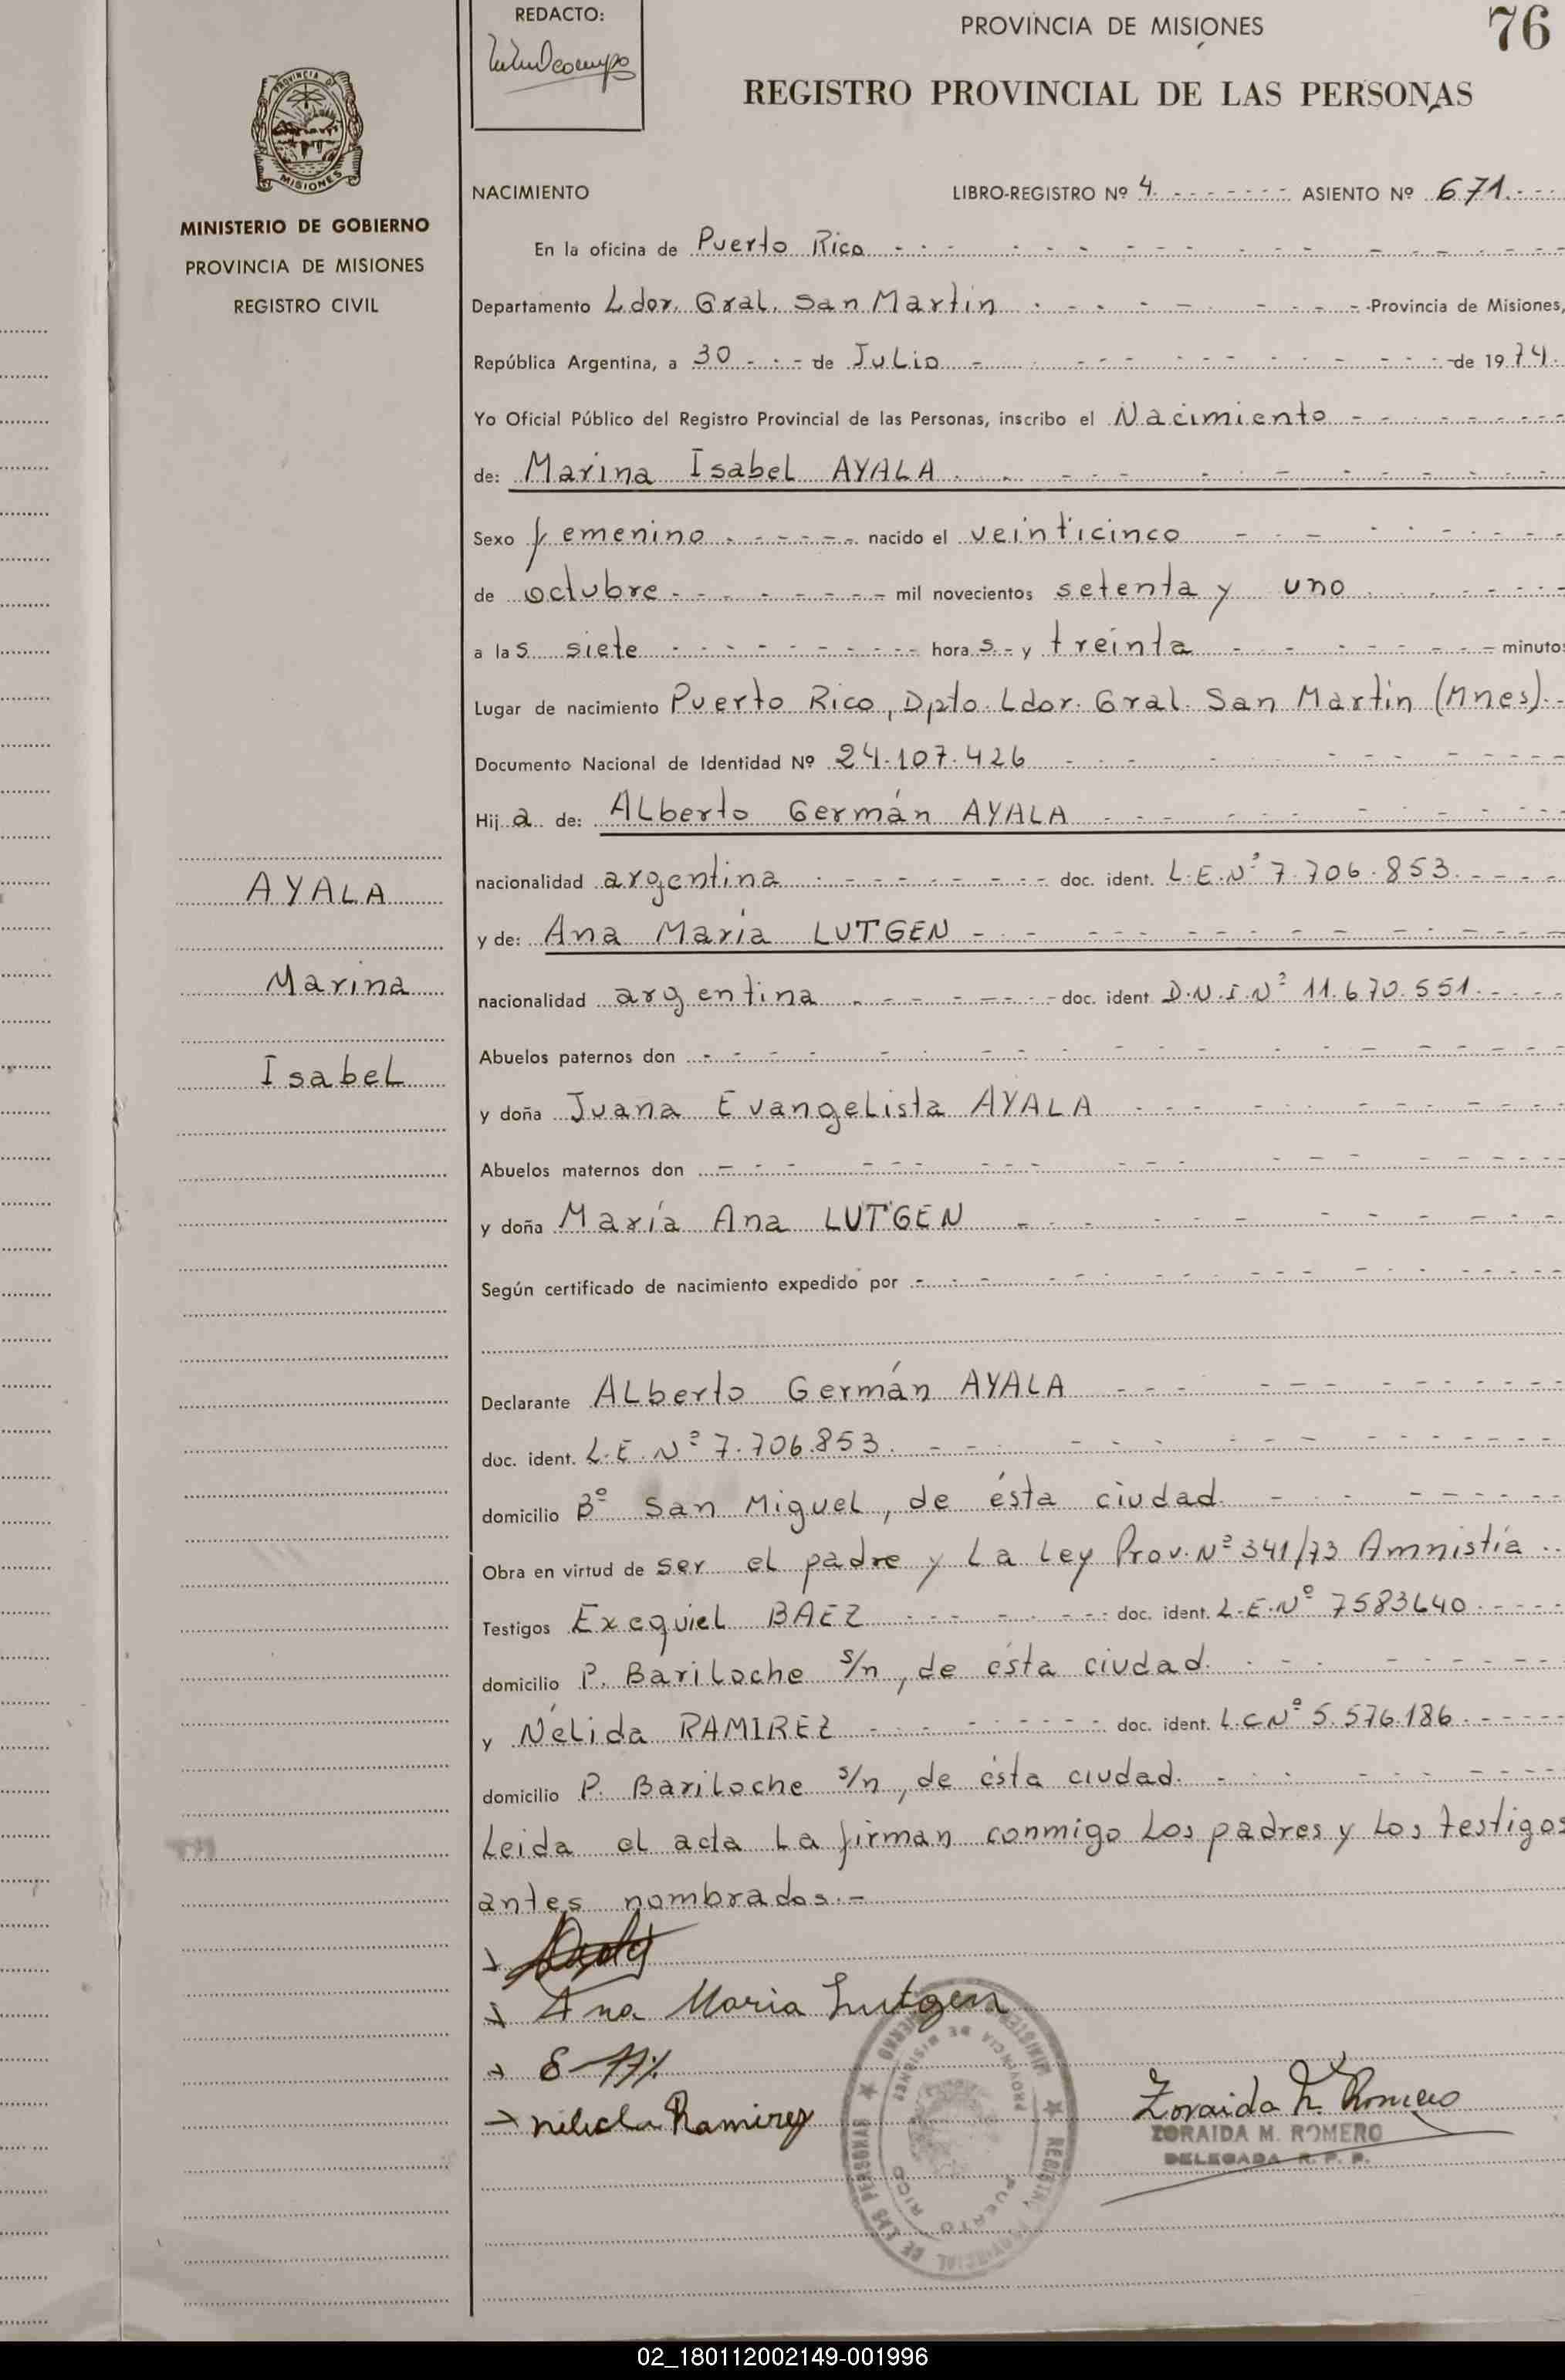 REDACTO:
PROVINCIA DE MISIONES
76
REGISTRO PROVINCIAL DE LAS PERSONAS
PROVINCIA DE
MISIONES
MINISTERIO DE GOBIERNO
PROVINCIA DE MISIONES
REGISTRO CIVIL
NACIMIENTO LIBRO-REGISTRO Nº 4 ASIENTO Nº 671
En la oficina de Puerto Rico
Departamento Ldor. Gral. San Martin Provincia de Misiones,
República Argentina, a 30 de Julio de 1974
Yo Oficial Público del Registro Provincial de las Personas, inscribo el Nacimiento
de: Marina Isabel AYALA
Sexo femenino nacido el veinticinco
de octubre mil novecientos setenta y uno
a las siete horas y treinta minutos
Lugar de nacimiento Puerto Rico, Dpto. Ldor. Gral. San Martin (Mnes).
Documento Nacional de Identidad Nº 24.107.426
Hija de: Alberto Germán AYALA
nacionalidad argentina doc. ident. L.E.Nº 7.706.853
y de: Ana María LUTGEN
nacionalidad argentina doc. ident D.N.I.Nº 11.670.551
Abuelos paternos don
y doña Juana Evangelista AYALA
Abuelos maternos don
y doña María Ana LUTGEN
Según certificado de nacimiento expedido por
Declarante Alberto Germán AYALA
doc. ident. L.E.Nº 7.706.853
domicilio Bº San Miguel, de ésta ciudad
Obra en virtud de ser el padre y la Ley Prov. Nº 341/73 Amnistía
Testigos Exequiel BAEZ doc. ident. L.E.Nº 7583640
domicilio P. Bariloche s/n, de ésta ciudad.
y Nélida RAMIREZ doc. ident. L.C Nº 5.576.186
domicilio P. Bariloche s/n, de ésta ciudad.
Leida el acta la firman conmigo los padres y los testigos
antes nombrados.-
AYALA
Marina
Isabel
Ana Maria Lutgen
nelida Ramirez
Zoraida M. Romero
ZORAIDA M. ROMERO
DELEGADA R. P. P.
PROVINCIA DE MISIONES
PUERTO RICO
02_180112002149-001996